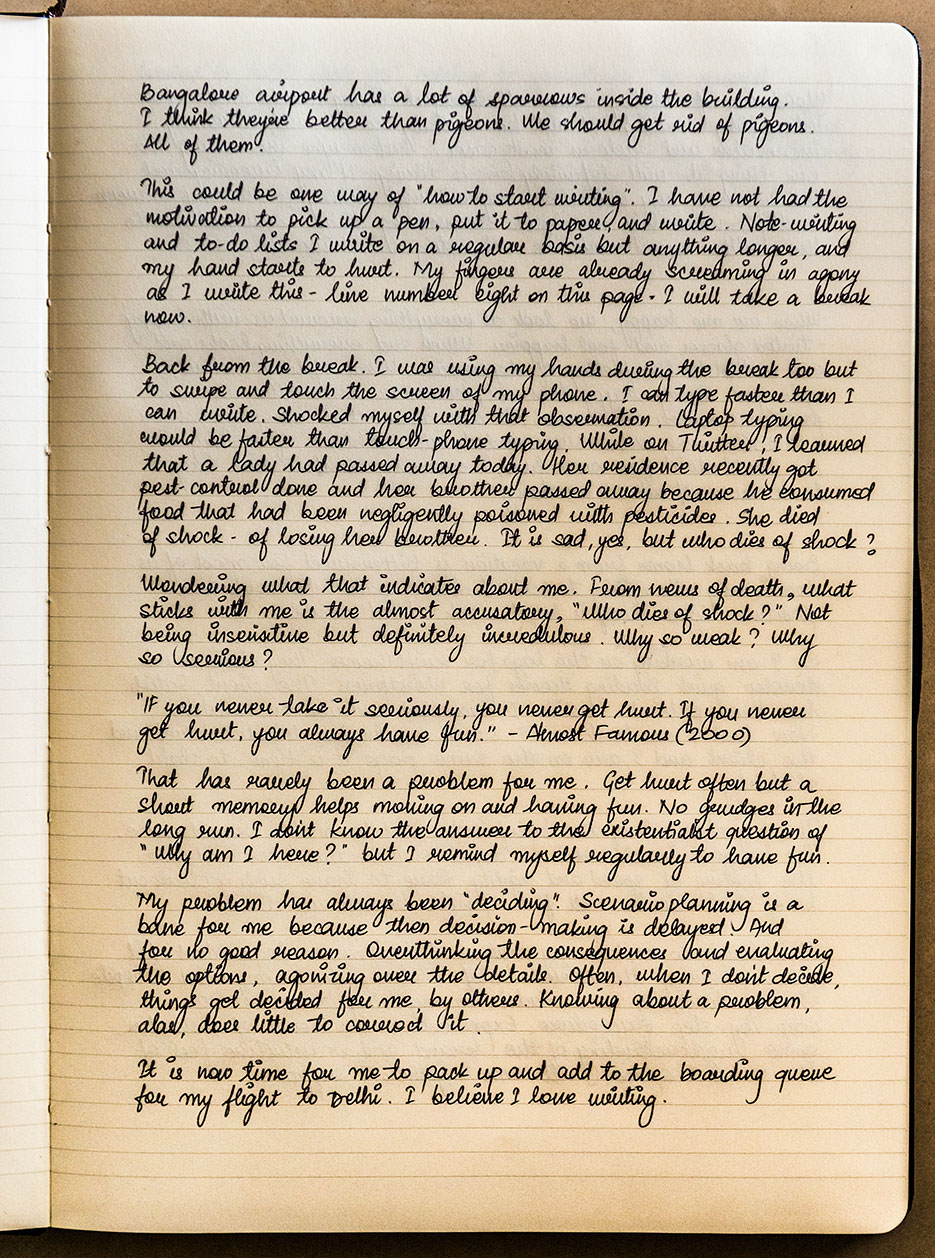 Bangalore airport has a lot of sparrows inside the building.
I think they're better than pigeons. We should get rid of pigeons.
All of them.
This could be one way of "how to start writing". I have not had the
motivation to pick up a pen, put it to paper, and write. Note-writing
and to-do lists I write on a regular basis but anything longer, and
my hand starts to hurt. My fingers are already screaming in agony
as I write this - line number eight on this page. I will take a break
now.
Back from the break. I was using my hands during the break too but
to swipe and touch the screen of my phone. I can type faster than I
can write. Shocked myself with that observation. Laptop typing
would be faster than touch-phone typing. While on Twitter, I learned
that a lady had passed away today. Her residence recently got
pest-control done and her brother passed away because he consumed
food that had been negligently poisoned with pesticides. She died
of shock - of losing her brother. It is sad, yes, but who dies of shock?
Wondering what that indicates about me. From news of death, what
sticks with me is the almost accusatory, "Who dies of shock?" Not
being insensitive but definitely incredulous. Why so weak? Why
so serious?
"If you never take it seriously, you never get hurt. If you never
get hurt, you always have fun." - Almost Famous (2000)
That has rarely been a problem for me. Get hurt often but a
short memory helps moving on and having fun. No grudges in the
long run. I don't know the answer to the existentialist question of
"Why am I here?" but I remind myself regularly to have fun.
My problem has always been "deciding". Scenario planning is a
bane for me because then decision-making is delayed. And
for no good reason. Overthinking the consequences and evaluating
the options, agonizing over the details. Often, when I don't decide,
things get decided for me, by others. Knowing about a problem,
alas, does little to correct it.
It is now time for me to pack up and add to the boarding queue
for my flight to Delhi. I believe I love writing.